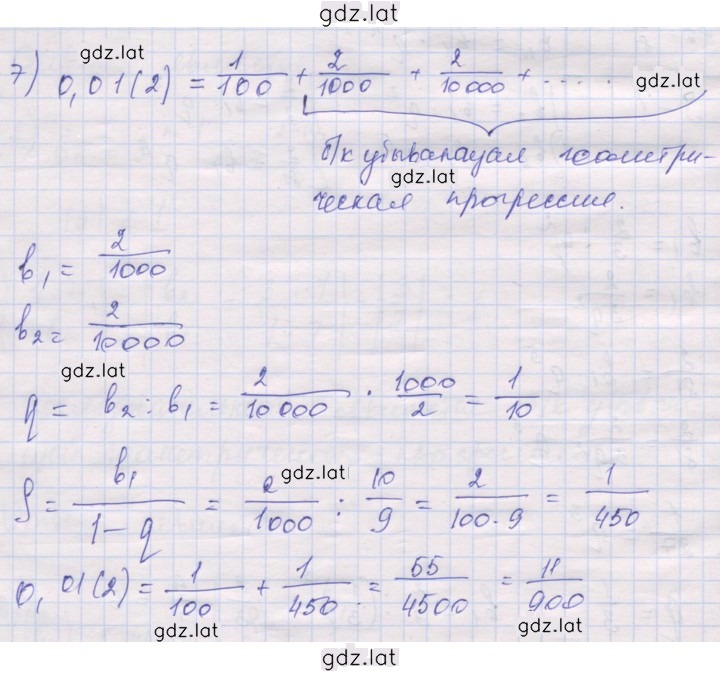 gdz.lat
gdz.lat
7) 0,01(2) = 1/100 + 2/1000 + 2/10000 + ....
gdz.lat
б/к убывающая геометри-
gdz.lat
ческая прогрессия.
b₁ = 2/1000
b₂ = 2/10000
gdz.lat
q = b₂ : b₁ = 2/10000 · 1000/2 = 1/10
gdz.lat
S = b₁/(1-q) = 2/1000 : 10/9 = 2/(100·9) = 1/450
0,01(2) = 1/100 + 1/450 = 55/4500 = 11/900
gdz.lat
gdz.lat
gdz.lat